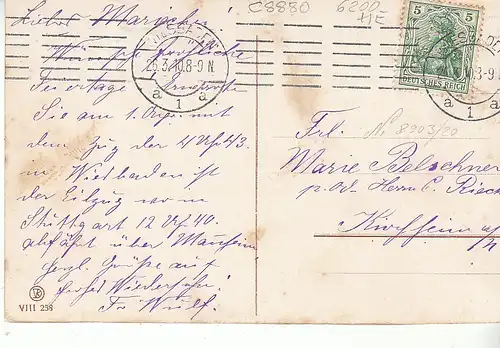 C8880 6200-
Liebes Mariechen!
Wünsche fröhliche
Feiertage. Erwarte
Sie am 1. Apr. mit
dem Zug der 4 Uhr 43
in Wiesbaden ist
der Eilzug von
Stuttgart 12 Uhr 40.
abfährt über Mannheim
Hergl. Grüße auf
frohes Wiedersehn!
Fr. Wulf.
WIESBADEN
26.3.10.8-9 N.
a 1 a
5 5
DEUTSCHES REICH
8-9
a 1
№ 8203/20
Frl.
Marie Belschner
p. Ad. Herrn C. Rieck
Kirchheim a/
VIII 238